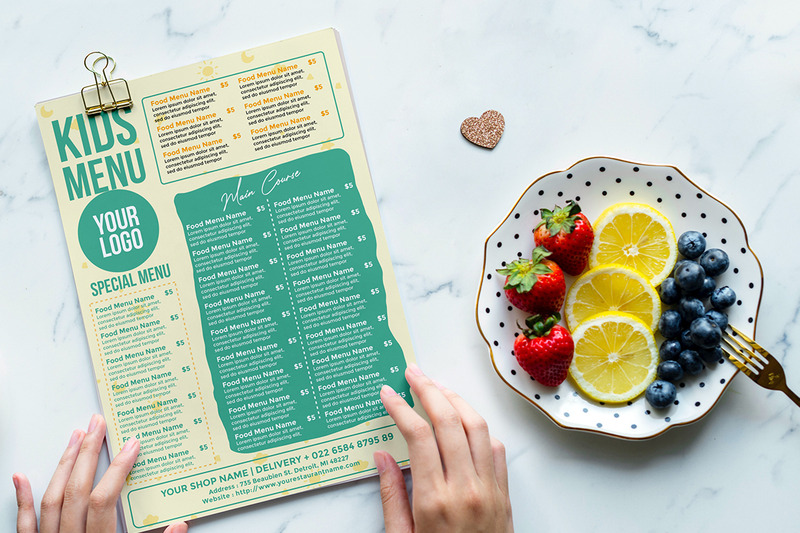 KIDS
MENU
YOUR
LOGO
Food Menu Name $5
Lorem ipsum dolor sit amet,
consectetur adipiscing elit,
sed do eiusmod tempor
Food Menu Name $5
Lorem ipsum dolor sit amet,
consectetur adipiscing elit,
sed do eiusmod tempor
Food Menu Name $5
Lorem ipsum dolor sit amet,
consectetur adipiscing elit,
sed do eiusmod tempor
Food Menu Name $5
Lorem ipsum dolor sit amet,
consectetur adipiscing elit,
sed do eiusmod tempor
Food Menu Name $5
Lorem ipsum dolor sit amet,
consectetur adipiscing elit,
sed do eiusmod tempor
Food Menu Name $5
Lorem ipsum dolor sit amet,
consectetur adipiscing elit,
sed do eiusmod tempor
SPECIAL MENU
Food Menu Name $5
Lorem ipsum dolor sit amet,
consectetur adipiscing elit,
sed do eiusmod tempor
Food Menu Name $5
Lorem ipsum dolor sit amet,
consectetur adipiscing elit,
sed do eiusmod tempor
Food Menu Name $5
Lorem ipsum dolor sit amet,
consectetur adipiscing elit,
sed do eiusmod tempor
Food Menu Name $5
Lorem ipsum dolor sit amet,
consectetur adipiscing elit,
sed do eiusmod tempor
Food Menu Name $5
Lorem ipsum dolor sit amet,
consectetur adipiscing elit,
sed do eiusmod tempor
Food Menu Name $5
Lorem ipsum dolor sit amet,
consectetur adipiscing elit,
sed do eiusmod tempor
Food Menu Name $5
Lorem ipsum dolor sit amet,
consectetur adipiscing elit,
sed do eiusmod tempor
Main Course
Food Menu Name $5
Lorem ipsum dolor sit amet,
consectetur adipiscing elit,
sed do eiusmod tempor
Food Menu Name $5
Lorem ipsum dolor sit amet,
consectetur adipiscing elit,
sed do eiusmod tempor
Food Menu Name $5
Lorem ipsum dolor sit amet,
consectetur adipiscing elit,
sed do eiusmod tempor
Food Menu Name $5
Lorem ipsum dolor sit amet,
consectetur adipiscing elit,
sed do eiusmod tempor
Food Menu Name $5
Lorem ipsum dolor sit amet,
consectetur adipiscing elit,
sed do eiusmod tempor
Food Menu Name $5
Lorem ipsum dolor sit amet,
consectetur adipiscing elit,
sed do eiusmod tempor
Food Menu Name $5
Lorem ipsum dolor sit amet,
consectetur adipiscing elit,
sed do eiusmod tempor
Food Menu Name $5
Lorem ipsum dolor sit amet,
consectetur adipiscing elit,
sed do eiusmod tempor
Food Menu Name $5
Lorem ipsum dolor sit amet,
consectetur adipiscing elit,
sed do eiusmod tempor
Food Menu Name $5
Lorem ipsum dolor sit amet,
consectetur adipiscing elit,
sed do eiusmod tempor
Food Menu Name $5
Lorem ipsum dolor sit amet,
consectetur adipiscing elit,
sed do eiusmod tempor
Food Menu Name $5
Lorem ipsum dolor sit amet,
consectetur adipiscing elit,
sed do eiusmod tempor
Food Menu Name $5
Lorem ipsum dolor sit amet,
consectetur adipiscing elit,
sed do eiusmod tempor
Food Menu Name $5
Lorem ipsum dolor sit amet,
consectetur adipiscing elit,
sed do eiusmod tempor
Food Menu Name $5
Lorem ipsum dolor sit amet,
consectetur adipiscing elit,
sed do eiusmod tempor
Food Menu Name $5
Lorem ipsum dolor sit amet,
consectetur adipiscing elit,
sed do eiusmod tempor
Food Menu Name $5
Lorem ipsum dolor sit amet,
consectetur adipiscing elit,
sed do eiusmod tempor
Food Menu Name
Lorem ipsum dolor sit
consectetur
YOUR SHOP NAME | DELIVERY + 022 6584 8795 89
Address : 735 Beaubien St. Detroit, MI 48227
Website : http://www.yourestaurantname.com